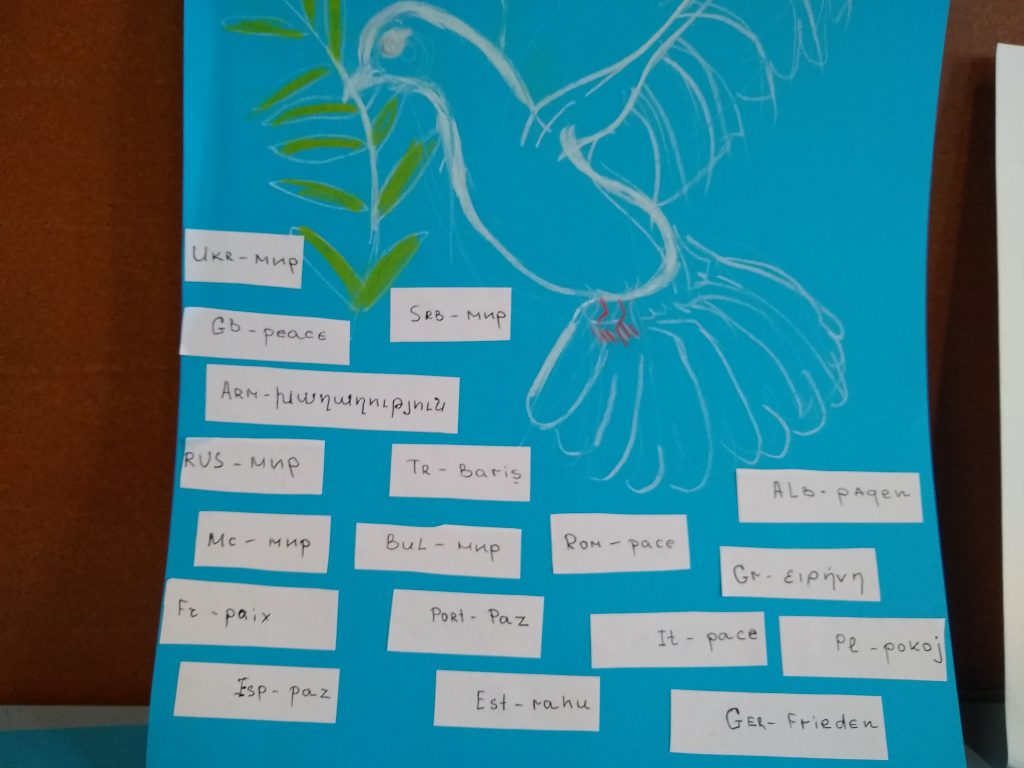 UKR - мир
GB - peace
SRB - мир
ARM - խաղաղություն
RUS - мир
TR - Bariş
ALB - paqen
MC - мир
BUL - мир
ROM - pace
Gr - ειρήνη
Fr - paix
PORt - Paz
It - pace
Pł - pokoj
Esp - paz
Est - rahu
GER - Frieden